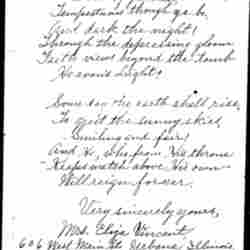 Tempestuous though you be,
And dark the night!
Through the depressing gloom
Faith views beyond the tomb
Heaven's light!
Some day the earth shall rise,
To greet the sunny skies
Smiling and fair!
And He, who from His throne
Keeps watch above His own
Will reign forever.
Very sincerely yours,
Mrs. Eliza Vincent
606 West Main St. Urbana, Illinois